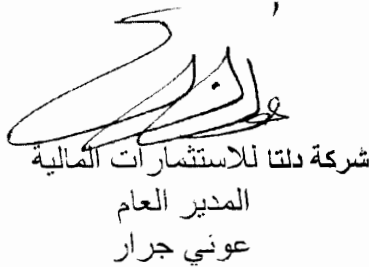 شركة دلتا للاستثمارات المالية
المدير العام
عوني جرار